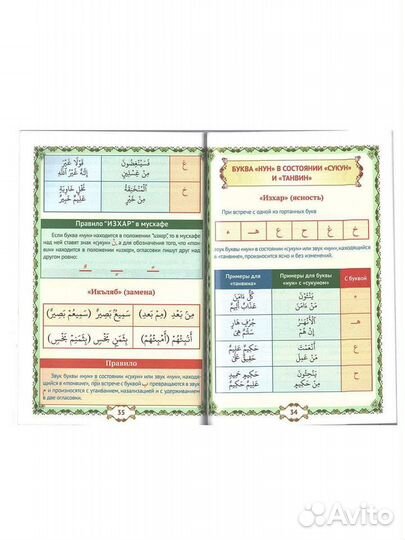 БУКВА «НУН» В СОСТОЯНИИ «СУКУН»
И «ТАНВИН»
«Изхар» (ясность)
При встрече с одной из гортанных букв
خ غ ح ع هـ ء
звук буквы «нун» в состоянии «сукун» или звук «нун», находящийся
в «танвине», произносятся ясно и без изменений.
Примеры для «танвина» Примеры для буквы «нун» с «сукуном» С буквой
ء يَنْئَوْنَ كُلٌّ ءَامَنَ
مَنْ ءَامَنَ عَذَابٌ أَلِيمٌ
هـ الْأَنْهَٰرُ جُرُفٍ هَارٍ
إِنْ هُوَ
ع أَنْعَمْتَ
مَنْ عَمِلَ حَقِيقٌ عَلَىٰ
ح يَنْحِتُونَ حَكِيمٍ حَمِيدٍ
مِنْ حَكِيمٍ عَلِيمٌ حَكِيمٌ
34
غ فَسَيُنْغِضُونَ قَوْلًا غَيْرَ
مِنْ غِسْلِينٍ إِلَٰهٌ غَيْرُ اللَّهِ
خ الْمُنْخَنِقَةُ نَخْلٍ خَاوِيَةٍ
مِنْ خَيْرٍ عَلِيمٌ خَبِيرٌ
Правило "ИЗХАР" в мусхафе
Если буква «нун» находится в положении "изхар", то в мусхафе
над ней ставят знак «сукун», а для обозначения того, что «тан-
вин» находится в положении «изхар», огласовки пишут друг над
другом ровно:
«Икъляб» (замена)
مِنْ بَعْدِ (مِمْ بَعْدِ) سَمِيعٌ بَصِيرٌ (سَمِيعُمْ بَصِيرٌ)
أَنْبِئْهُمْ (أَمْبِئْهُمْ) بِثَمَنٍ بَخْسٍ (بِثَمَنِمْ بَخْسٍ)
Правило
Звук буквы «нун» в состоянии «сукун» или звук «нун», находя-
щийся в «танвине», при встрече с буквой ب превращаются в звук
م и произносятся с утаиванием, назализацией и с удерживанием
в две огласовки.
35
Avito